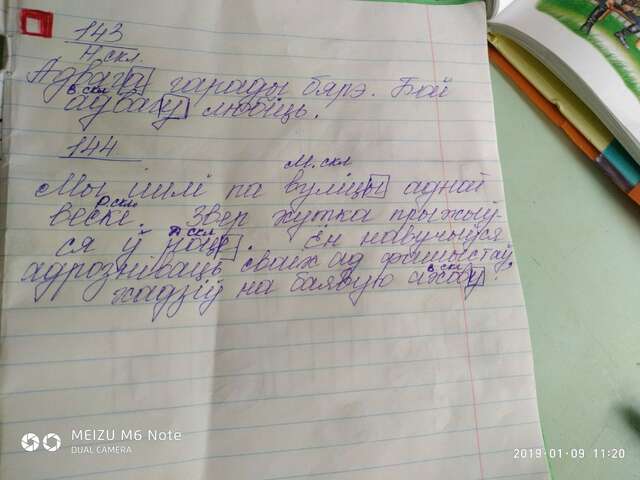 143
Н. скл.
Адвага гарады бярэ. Бой
В. скл.
адвагу любіць.
144
М. скл
Мы ішлі па вуліцы адной
Р. скл.
вёскі. Звер хутка прыжыў-
ся ў
Ён навучыўся
адрозніваць сваіх ад фашыстаў,
В. скл
хадзіў на баявую ахову.
MEIZU M6 Note
DUAL CAMERA
2019-01-09 11:20